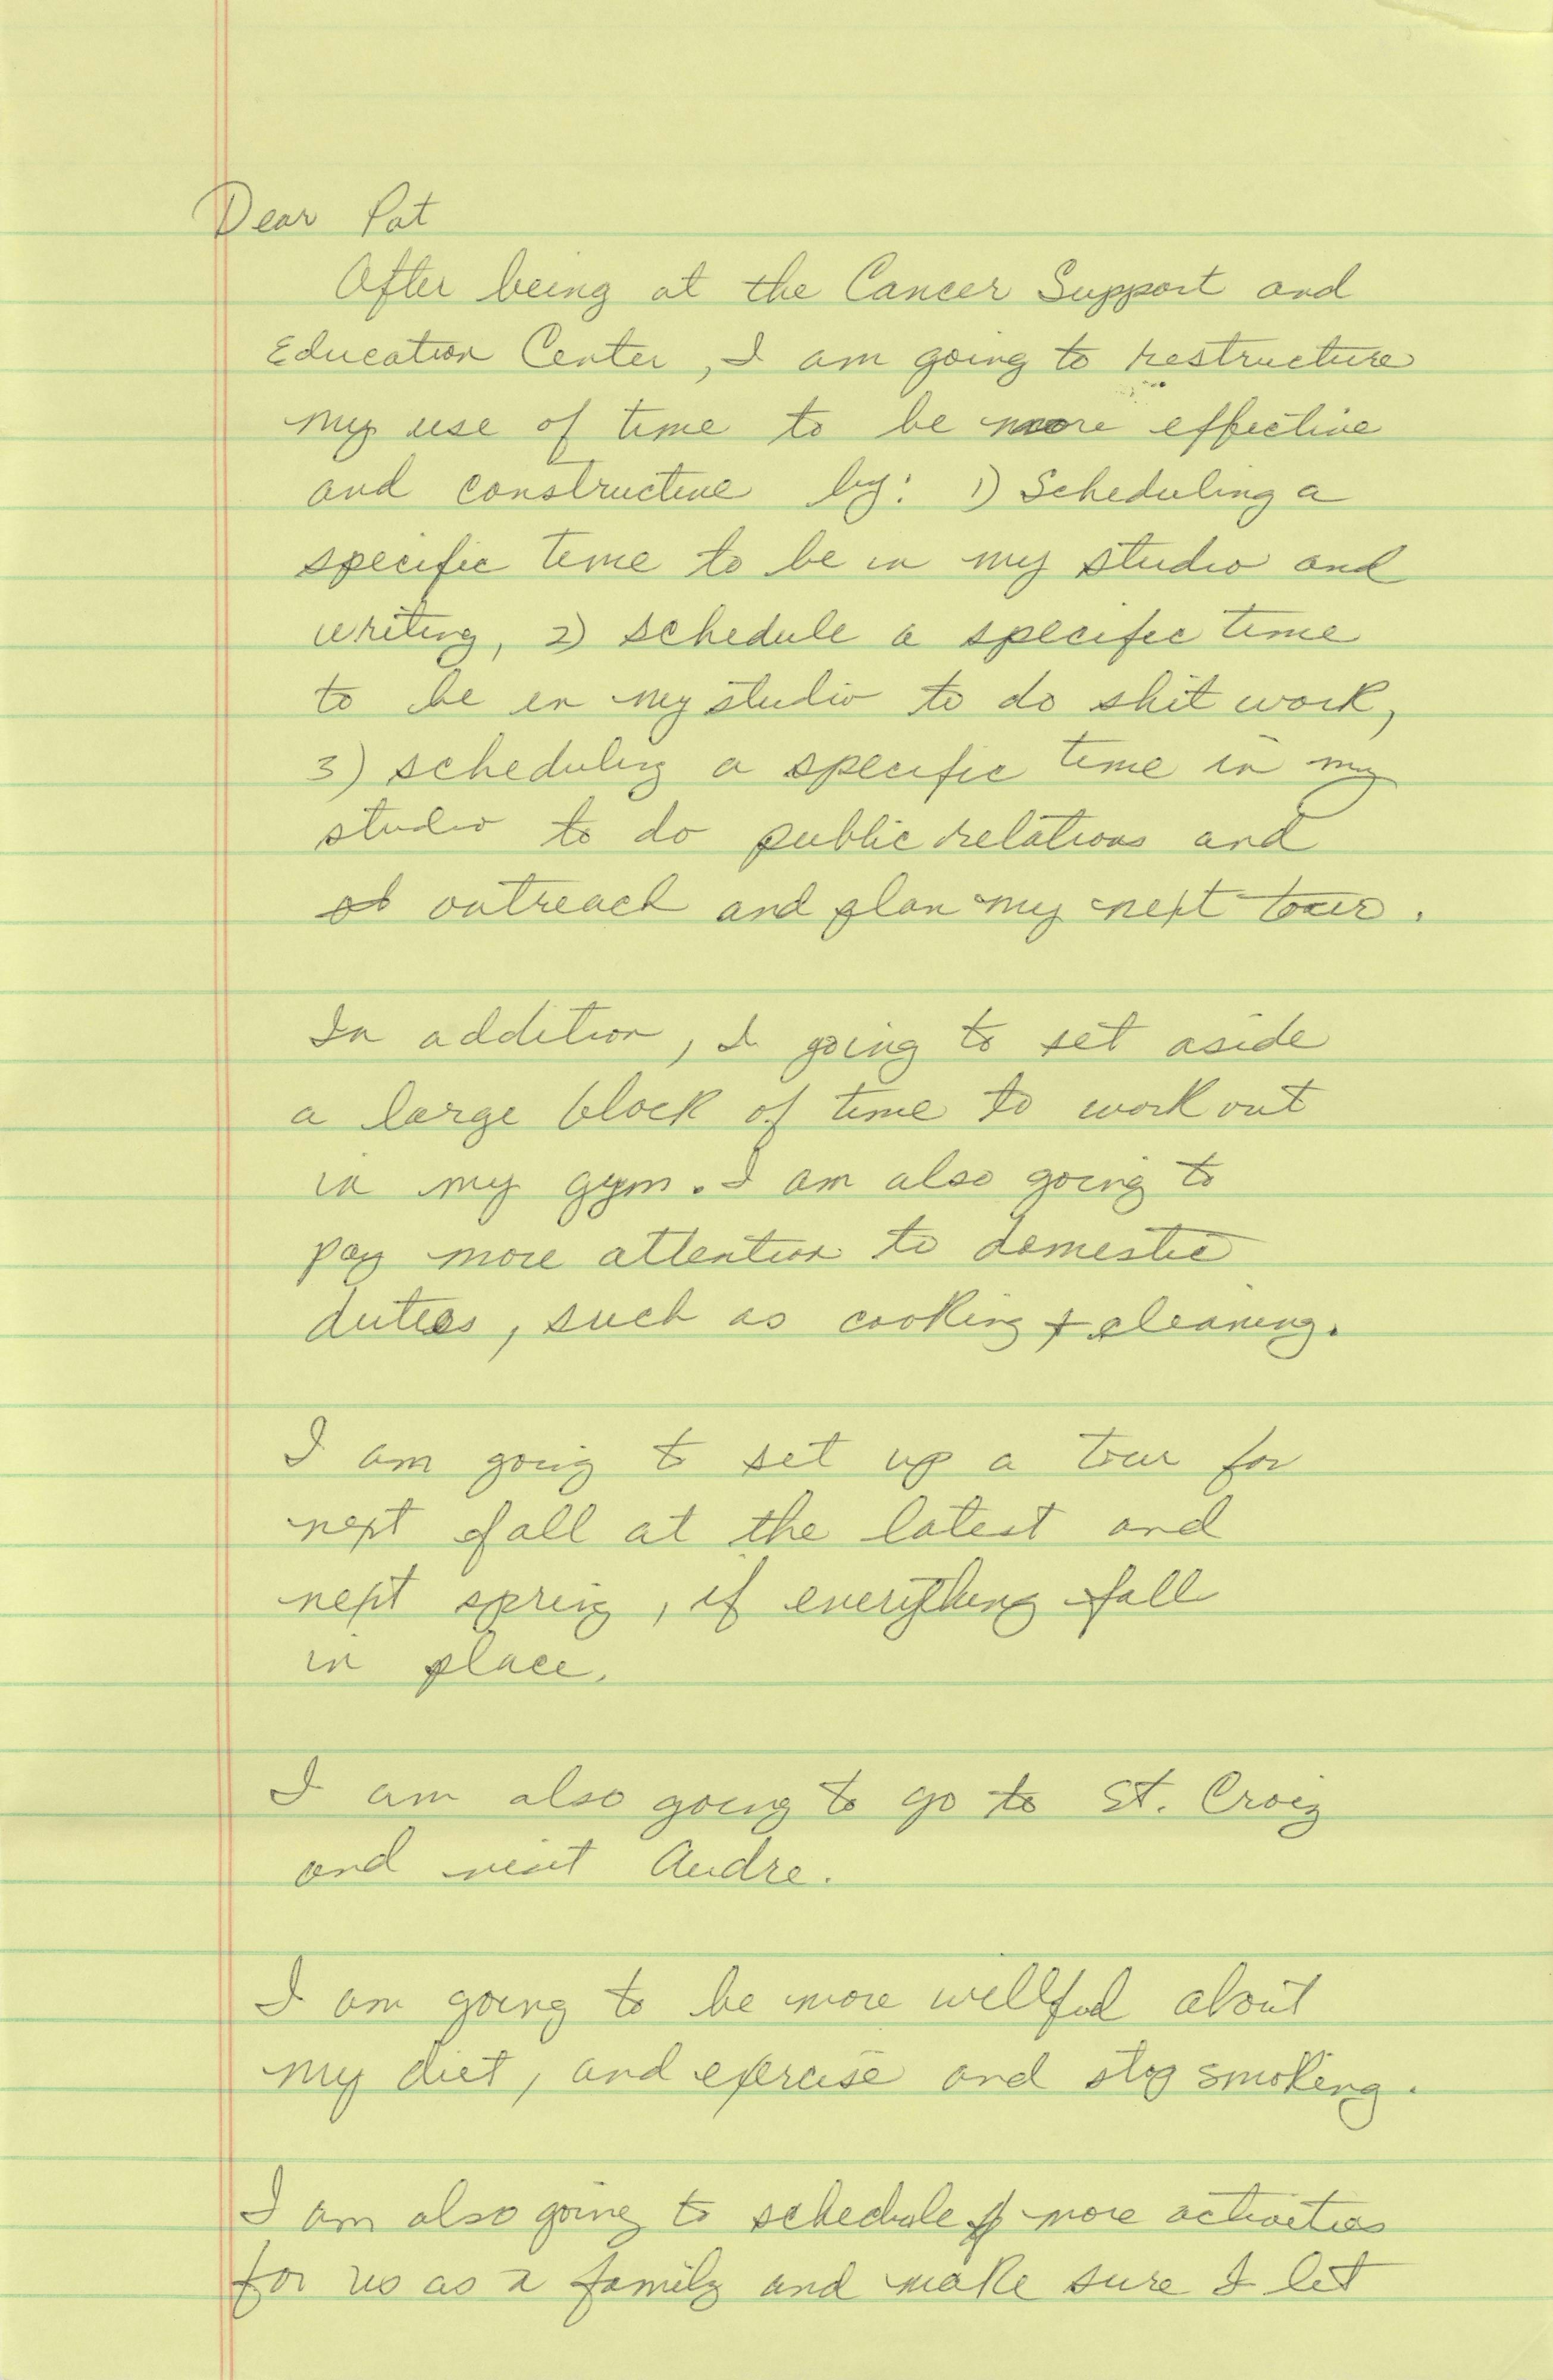 Dear Pat
After being at the Cancer Support and
Education Center, I am going to restructure
my use of time to be more effective
and constructive by: 1) Scheduling a
specific time to be in my studio and
writing, 2) schedule a specific time
to be in my studio to do shit work,
3) scheduling a specific time in my
studio to do public relations and
outreach and plan my next tour.
In addition, I going to set aside
a large block of time to work out
in my gym. I am also going to
pay more attention to domestic
duties, such as cooking + cleaning.
I am going to set up a tour for
next fall at the latest and
next spring, if everything fall
in place.
I am also going to go to St. Croiz
and visit Audre.
I am going to be more willful about
my diet, and exercise and stop smoking.
I am also going to schedule more activities
for us as a family and make sure I let